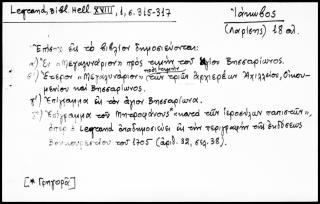 Legrand, Bibl. Hell. XVIII, 1, σ. 315-317
Ἰάκωβος
(Λαρίσης) 18 αἰ.
Ἐπίσης εἰς τὸ βιβλίον δημοσιεύονται:
α') Ἓν "Μεγαλυνάριον" πρὸς τιμὴν τοῦ ἁγίου Βησσαρίωνος.
β') Ἕτερον "Μεγαλυνάριον" πρὸς τιμὴν τῶν τριῶν ἀρχιερέων Ἀχιλλείου, Οἰκου-
μενίου καὶ Βησσαρίωνος.
γ') Ἐπίγραμμα εἰς τὸν ἅγιον Βησσαρίωνα.
δ') Ἐπίγραμμα τοῦ Μητροφάνους* "κατὰ τῶν Ἱεροσύλων παπιστῶν",
ὅπερ ὁ Legrand ἀναδημοσιεύει εἰς τὴν περιγραφὴν τῆς ἐκδόσεως
Βουκουρεστίου τοῦ 1705 (ἀριθ. 32, σελ. 38).
[* Γρηγορᾶ]